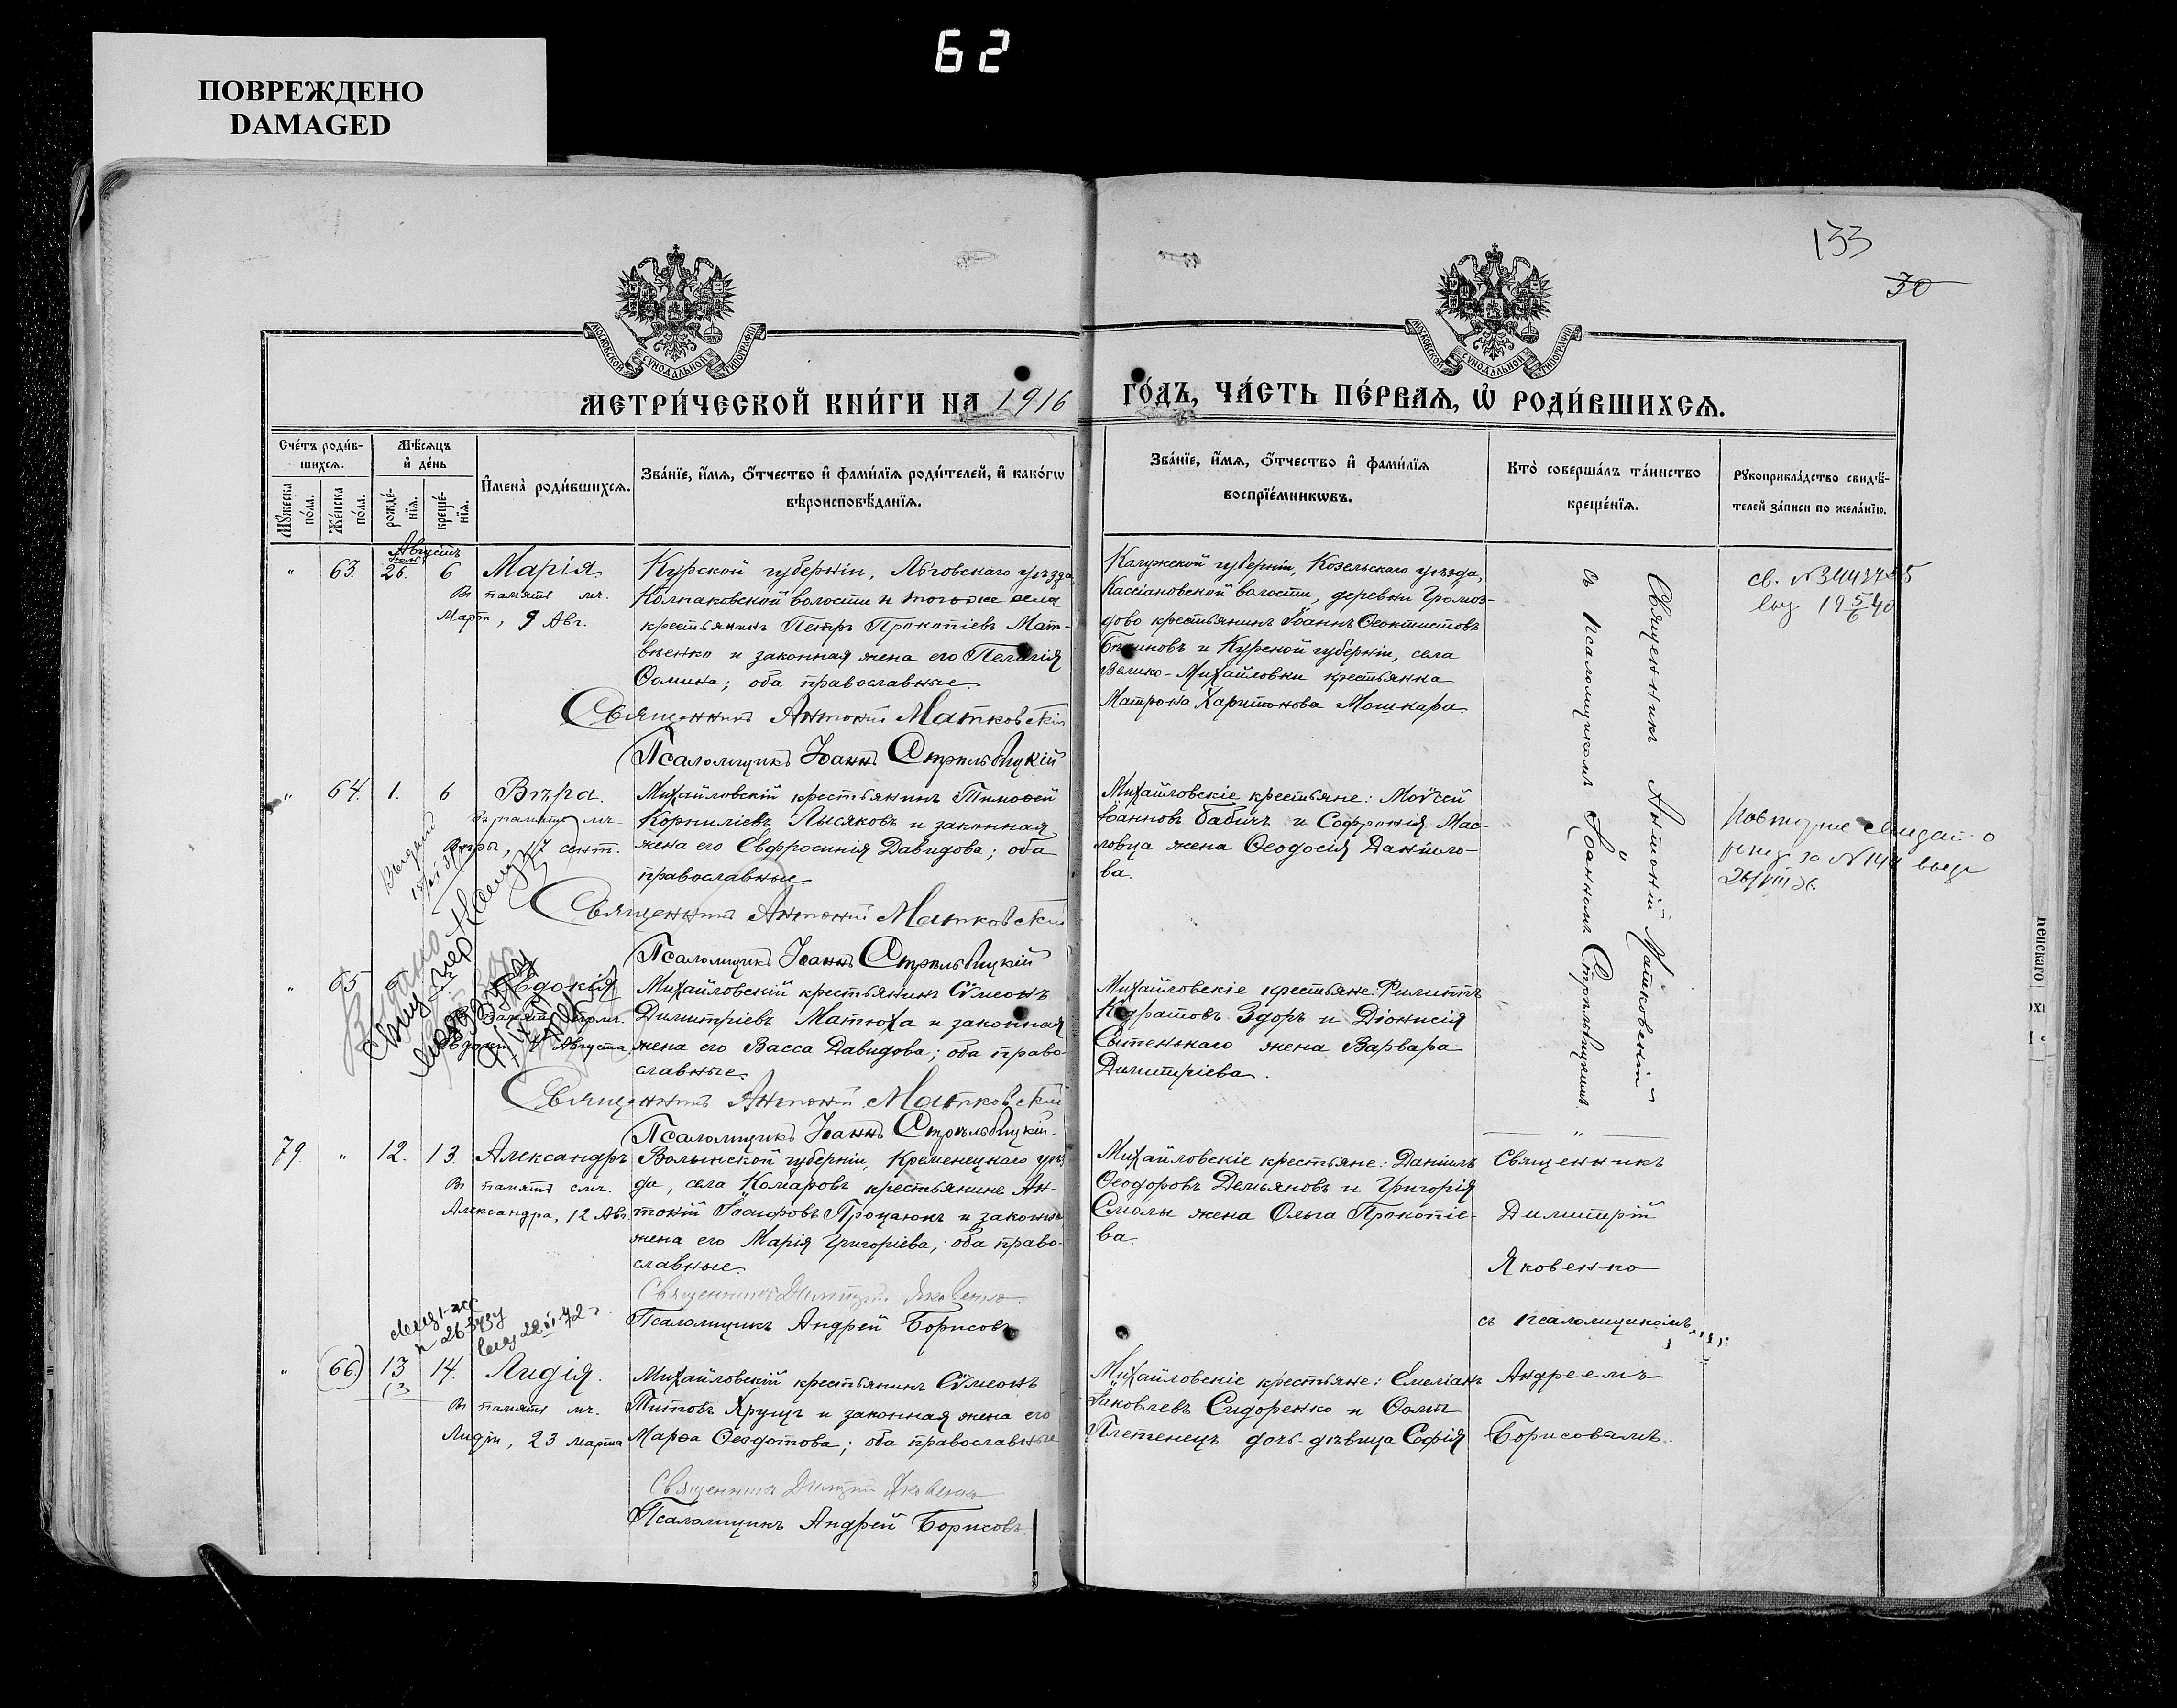 62
ПОВРЕЖДЕНО
DAMAGED
133
30
МОСКОВСКОЙ СУНОДАЛЬНОЙ ТИПОГРАФІИ
МОСКОВСКОЙ СУНОДАЛЬНОЙ ТИПОГРАФІИ
МЕТРИ́ЧЕСКОЙ КНИ́ГИ НА 1916
ГО́ДЪ, ЧА́СТЬ ПЕ́РВАѦ, Ѽ РОДИ́ВШИХСѦ.
Сче́тъ роди́в-
шихсѧ.
Мѣ́сѧцъ
и҆ де́нь
Мꙋ́жеска по́ла.
Же́нска по́ла.
рожде́-
нїѧ.
креще́-
нїѧ.
И҆мена̀ роди́вшихсѧ.
Зва́нїе, и҆́мѧ, ѻ҆́тчество и҆ фами́лїѧ роди́телей, и҆ како́гѡ
вѣроисповѣ́данїѧ.
Зва́нїе, и҆́мѧ, ѻ҆́тчество и҆ фами́лїѧ
воспрїе́мникѡвъ.
Кто̀ соверша́лъ та́инство
креще́нїѧ.
Рꙋкоприкла́дство свидѣ́-
телей за́писи по жела́нїю.
Августъ
" 63. 26. 6 Марія
Въ память мч.
Март, 9 Авг.
Курской губерніи, Льговскаго уѣзда
Колпаковской волости и того-же села
крестьянинъ Петръ Прокопіевъ Мат-
вѣенко и законная жена его Пелагія
Ѳомина; оба православные.
Священникъ Антоній Матковскій
Псаломщикъ Іоаннъ Стрѣльбицкій
Калужской губерніи, Козельскаго уѣзда,
Кассіановской волости, деревни Громоз-
дово крестьянинъ Іоаннъ Ѳеоктистовъ
и Курской губерніи, села
Велико-Михайловки крестьянка
Матрона Харитонова Мошкара.
Священникъ Антоній Матковскій
съ псаломщикомъ Іоанномъ Стрѣльбицкимъ.
" 64. 1. 6 Вѣра.
Въ память мч.
Вѣры, 17 сент.
Михайловскій крестьянинъ Тимоѳей
Корниліевъ Лысяковъ и законная
жена его Евфросинія Давидова; оба
православные.
Священникъ Антоній Матковскій
Псаломщикъ Іоаннъ Стрѣльбицкій
Михайловскіе крестьяне: Моѵсей
Іоанновъ Бабичъ и Софронія Мас-
ловца жена Ѳеодосія Даніило-
ва.
" 65 Евдокія
Августа.
Михайловскій крестьянинъ Сѵмеонъ
Димитріевъ Матюха и законная
жена его Васса Давидова; оба право-
славные.
Священникъ Антоній Матковскій
Псаломщикъ Іоаннъ Стрѣльбицкій.
Михайловскіе крестьяне Филиппъ
Кодратовъ Здоръ и Діонисія
Сытенькаго жена Варвара
Димитріева.
79. " 12. 13. Александръ
Въ память смч.
Александра, 12 Авг.
Волынской губерніи, Кременецкаго уѣз-
да, села Комаровъ крестьянинъ Ан-
тоній Іосифовъ Процаюкъ и законная
жена его Марія Григоріева; оба право-
славные.
Священникъ Димитрій Яковенко.
Псаломщикъ Андрей Борисовъ
Михайловскіе крестьяне: Даніилъ
Ѳеодоровъ Демьяновъ и Григорія
Смолы жена Ольга Прокопіе-
ва.
Священникъ
Димитрій
Яковенко
съ псаломщикомъ
Андреемъ
Борисовымъ.
" 66. 13 14. Лидія.
13
Въ память мч.
Лидіи, 23 марта
Михайловскій крестьянинъ Сѵмеонъ
Титовъ Ярущъ и законная жена его
Марѳа Ѳеодотова; оба православные
Священникъ Димитрій Яковенко
Псаломщикъ Андрей Борисовъ.
Михайловскіе крестьяне: Емеліанъ
Іаковлевъ Сидоренко и Ѳомы
Плетенецъ дочь-дѣвица Софія